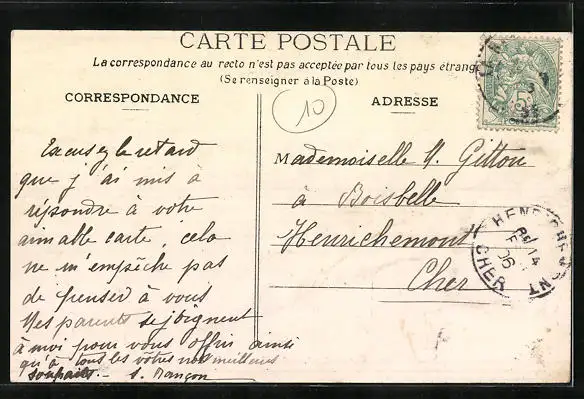 CARTE POSTALE
La correspondance au recto n'est pas acceptée par tous les pays étrang
(Se renseigner à la Poste)
CORRESPONDANCE
ADRESSE
10
Excusez le retard
que j'ai mis à
répondre à votre
aimable carte, cela
ne m'empêche pas
de penser à vous
Mes parents se joignent
à moi pour vous offrir ainsi
qu'à tous les vôtres nos meilleurs
souhaits.
Mademoiselle M. Gitton
à Boisbelle
Henrichemont
Cher
HENRICHEMONT
14
06
CHER